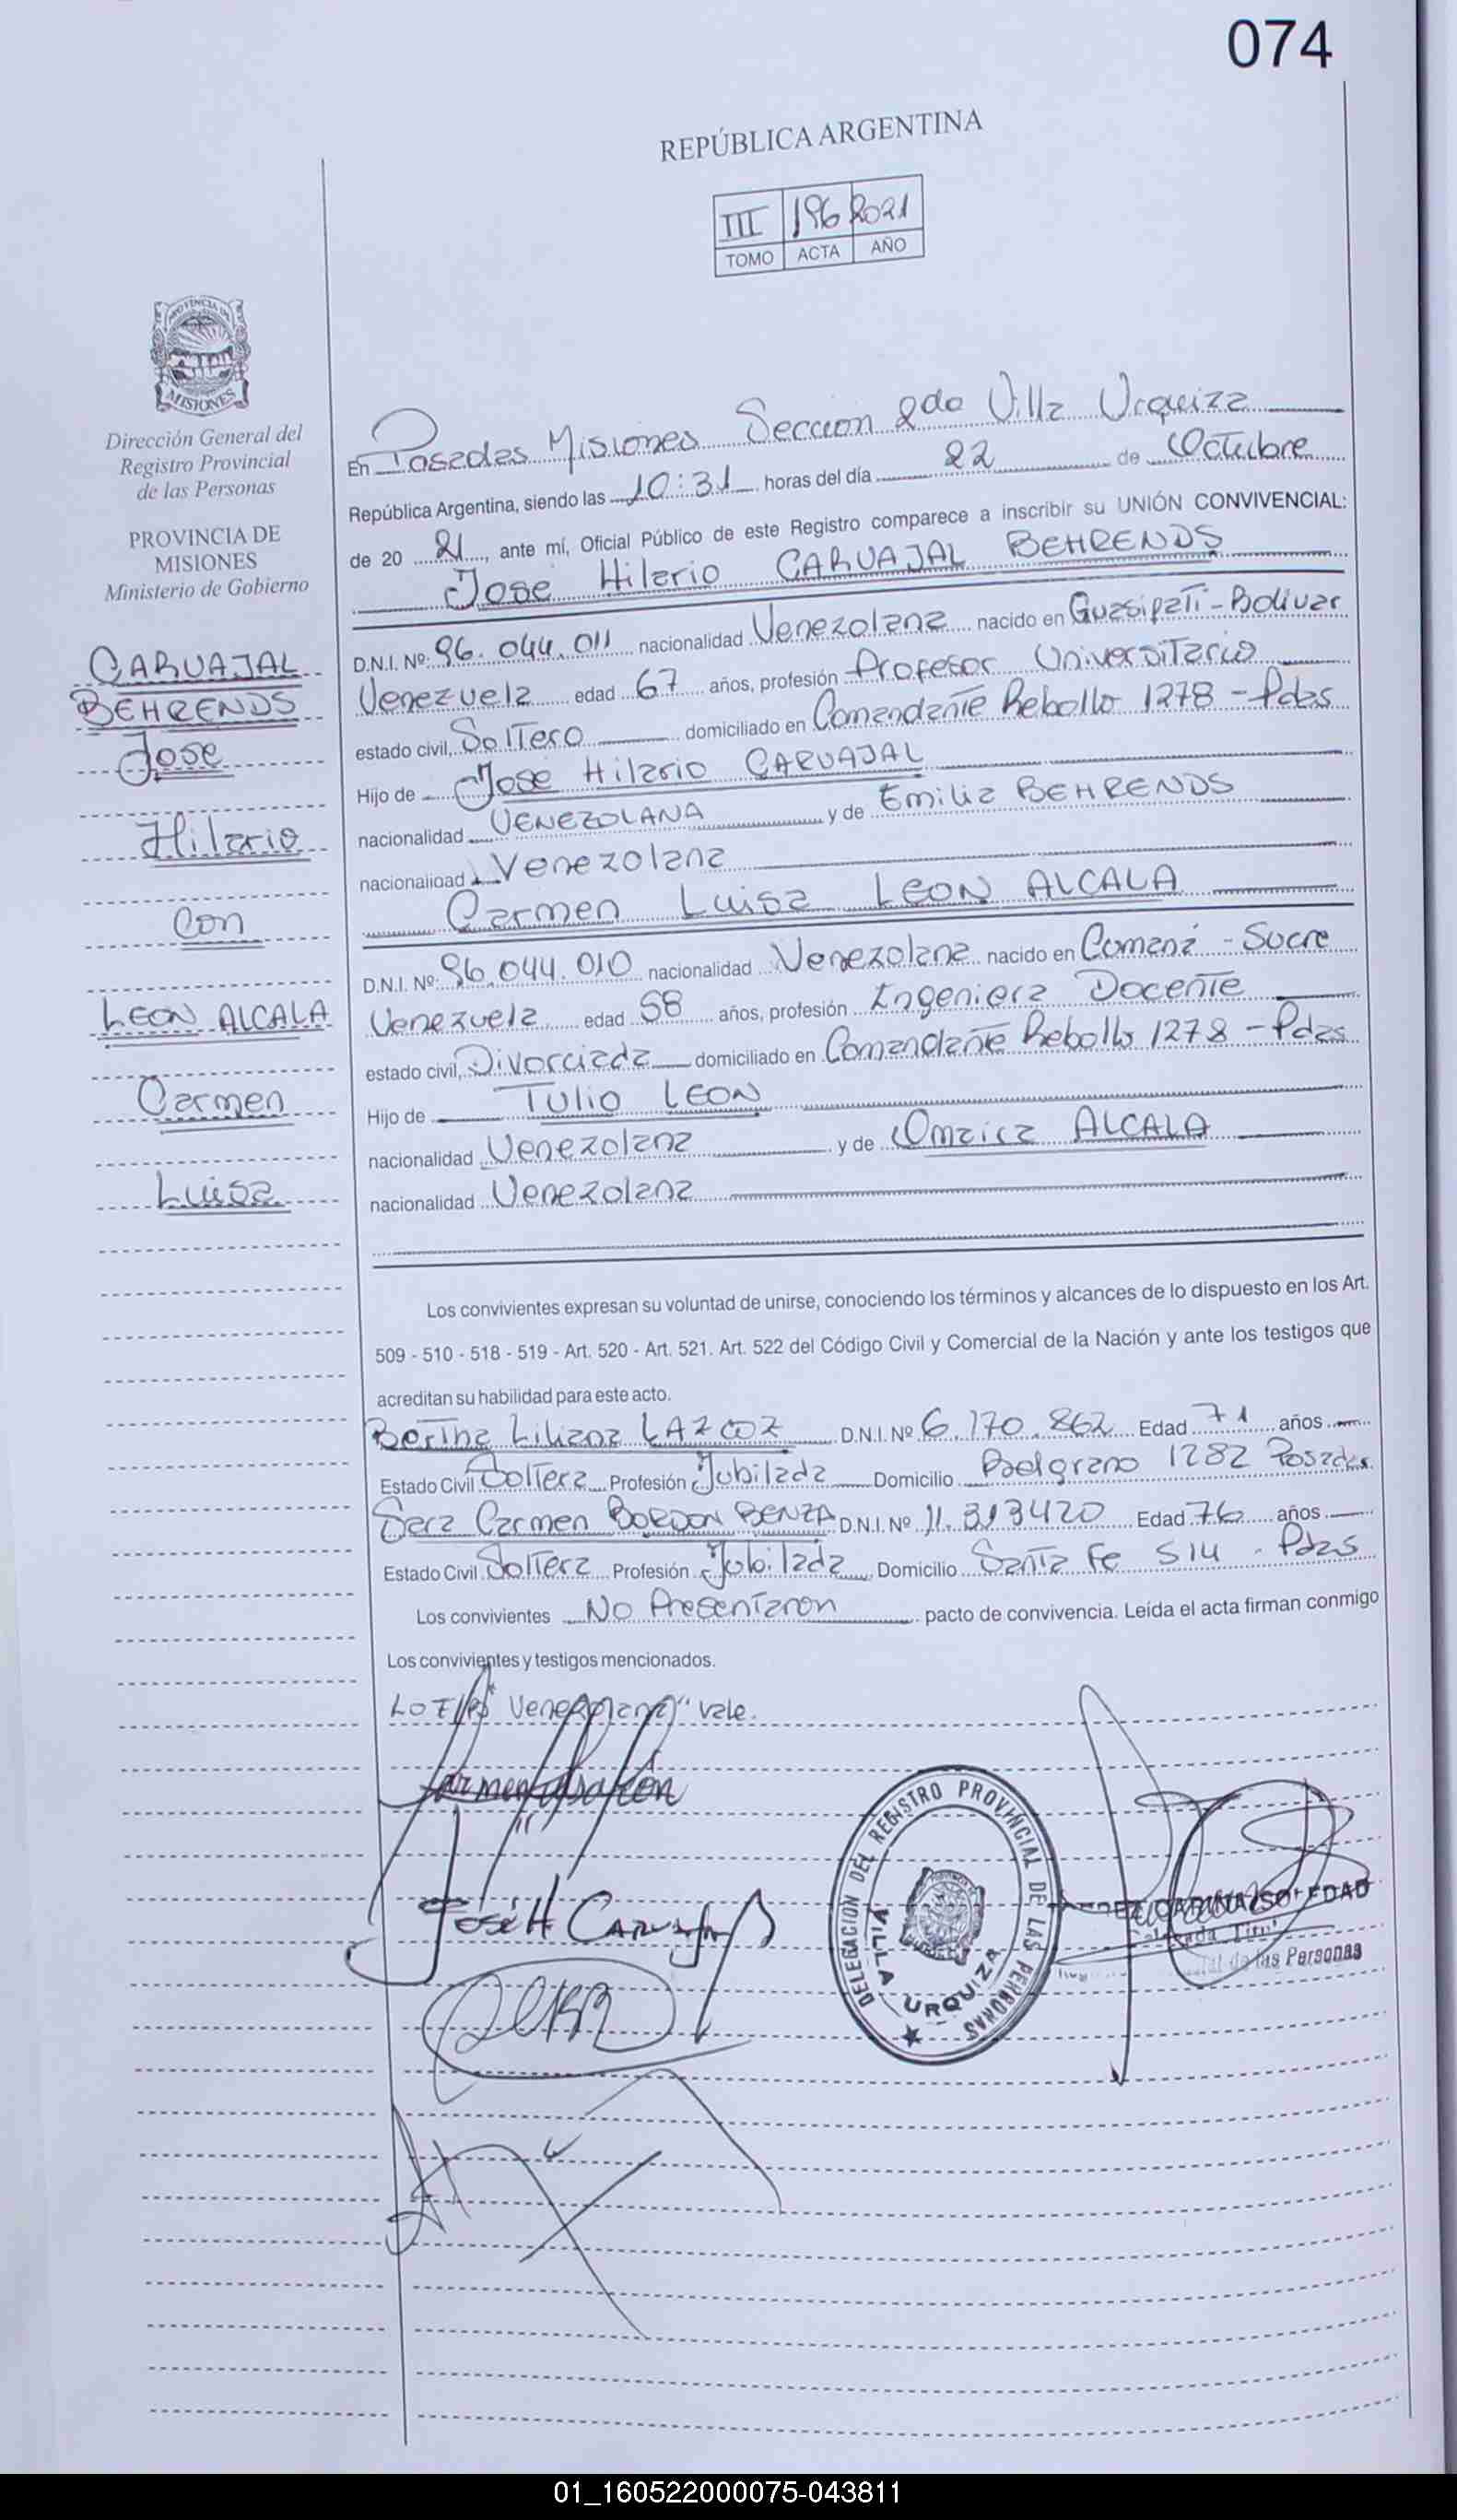 074
REPÚBLICA ARGENTINA
III 196 2021
TOMO ACTA AÑO
PROVINCIA DE
MISIONES
Dirección General del
Registro Provincial
de las Personas
PROVINCIA DE
MISIONES
Ministerio de Gobierno
CARVAJAL
BEHRENDS
Jose
Hilario
Con
LEON ALCALA
Carmen
Luisa
En Posadas Misiones Seccion 2da Villa Urquiza
República Argentina, siendo las 10:31 horas del día 22 de Octubre
de 20 21, ante mí, Oficial Público de este Registro comparece a inscribir su UNIÓN CONVIVENCIAL:
Jose Hilario CARVAJAL BEHRENDS
D.N.I. Nº: 96.044.011 nacionalidad Venezolana nacido en Guasipati - Bolivar
Venezuela edad 67 años, profesión Profesor Universitario
estado civil, Soltero domiciliado en Comandante Rebollo 1278 - Pdas
Hijo de Jose Hilario CARVAJAL
nacionalidad VENEZOLANA y de Emilia BEHRENDS
nacionalidad Venezolana
Carmen Luisa LEON ALCALA
D.N.I. Nº: 96.044.010 nacionalidad Venezolana nacido en Comaná - Sucre
Venezuela edad 58 años, profesión Ingeniera Docente
estado civil, Divorciada domiciliado en Comandante Rebollo 1278 - Pdas
Hijo de Tulio LEON
nacionalidad Venezolana y de Omaira ALCALA
nacionalidad Venezolana
Los convivientes expresan su voluntad de unirse, conociendo los términos y alcances de lo dispuesto en los Art.
509 - 510 - 518 - 519 - Art. 520 - Art. 521. Art. 522 del Código Civil y Comercial de la Nación y ante los testigos que
acreditan su habilidad para este acto.
Bertha Liliana LAZCOZ D.N.I. Nº 6.170.862 Edad 71 años
Estado Civil Soltera Profesión Jubilada Domicilio Belgrano 1282 Posadas
Sara Carmen BORDON BENZA D.N.I. Nº 11.313420 Edad 76 años
Estado Civil Soltera Profesión Jubilada Domicilio Santa Fe 514 - Pdas
Los convivientes No Presentaron pacto de convivencia. Leída el acta firman conmigo
Los convivientes y testigos mencionados.
Venezolana" vale.
José H Carvajal B
DELEGACION DEL REGISTRO PROVINCIAL DE LAS PERSONAS
VILLA URQUIZA
de las Personas
01_160522000075-043811